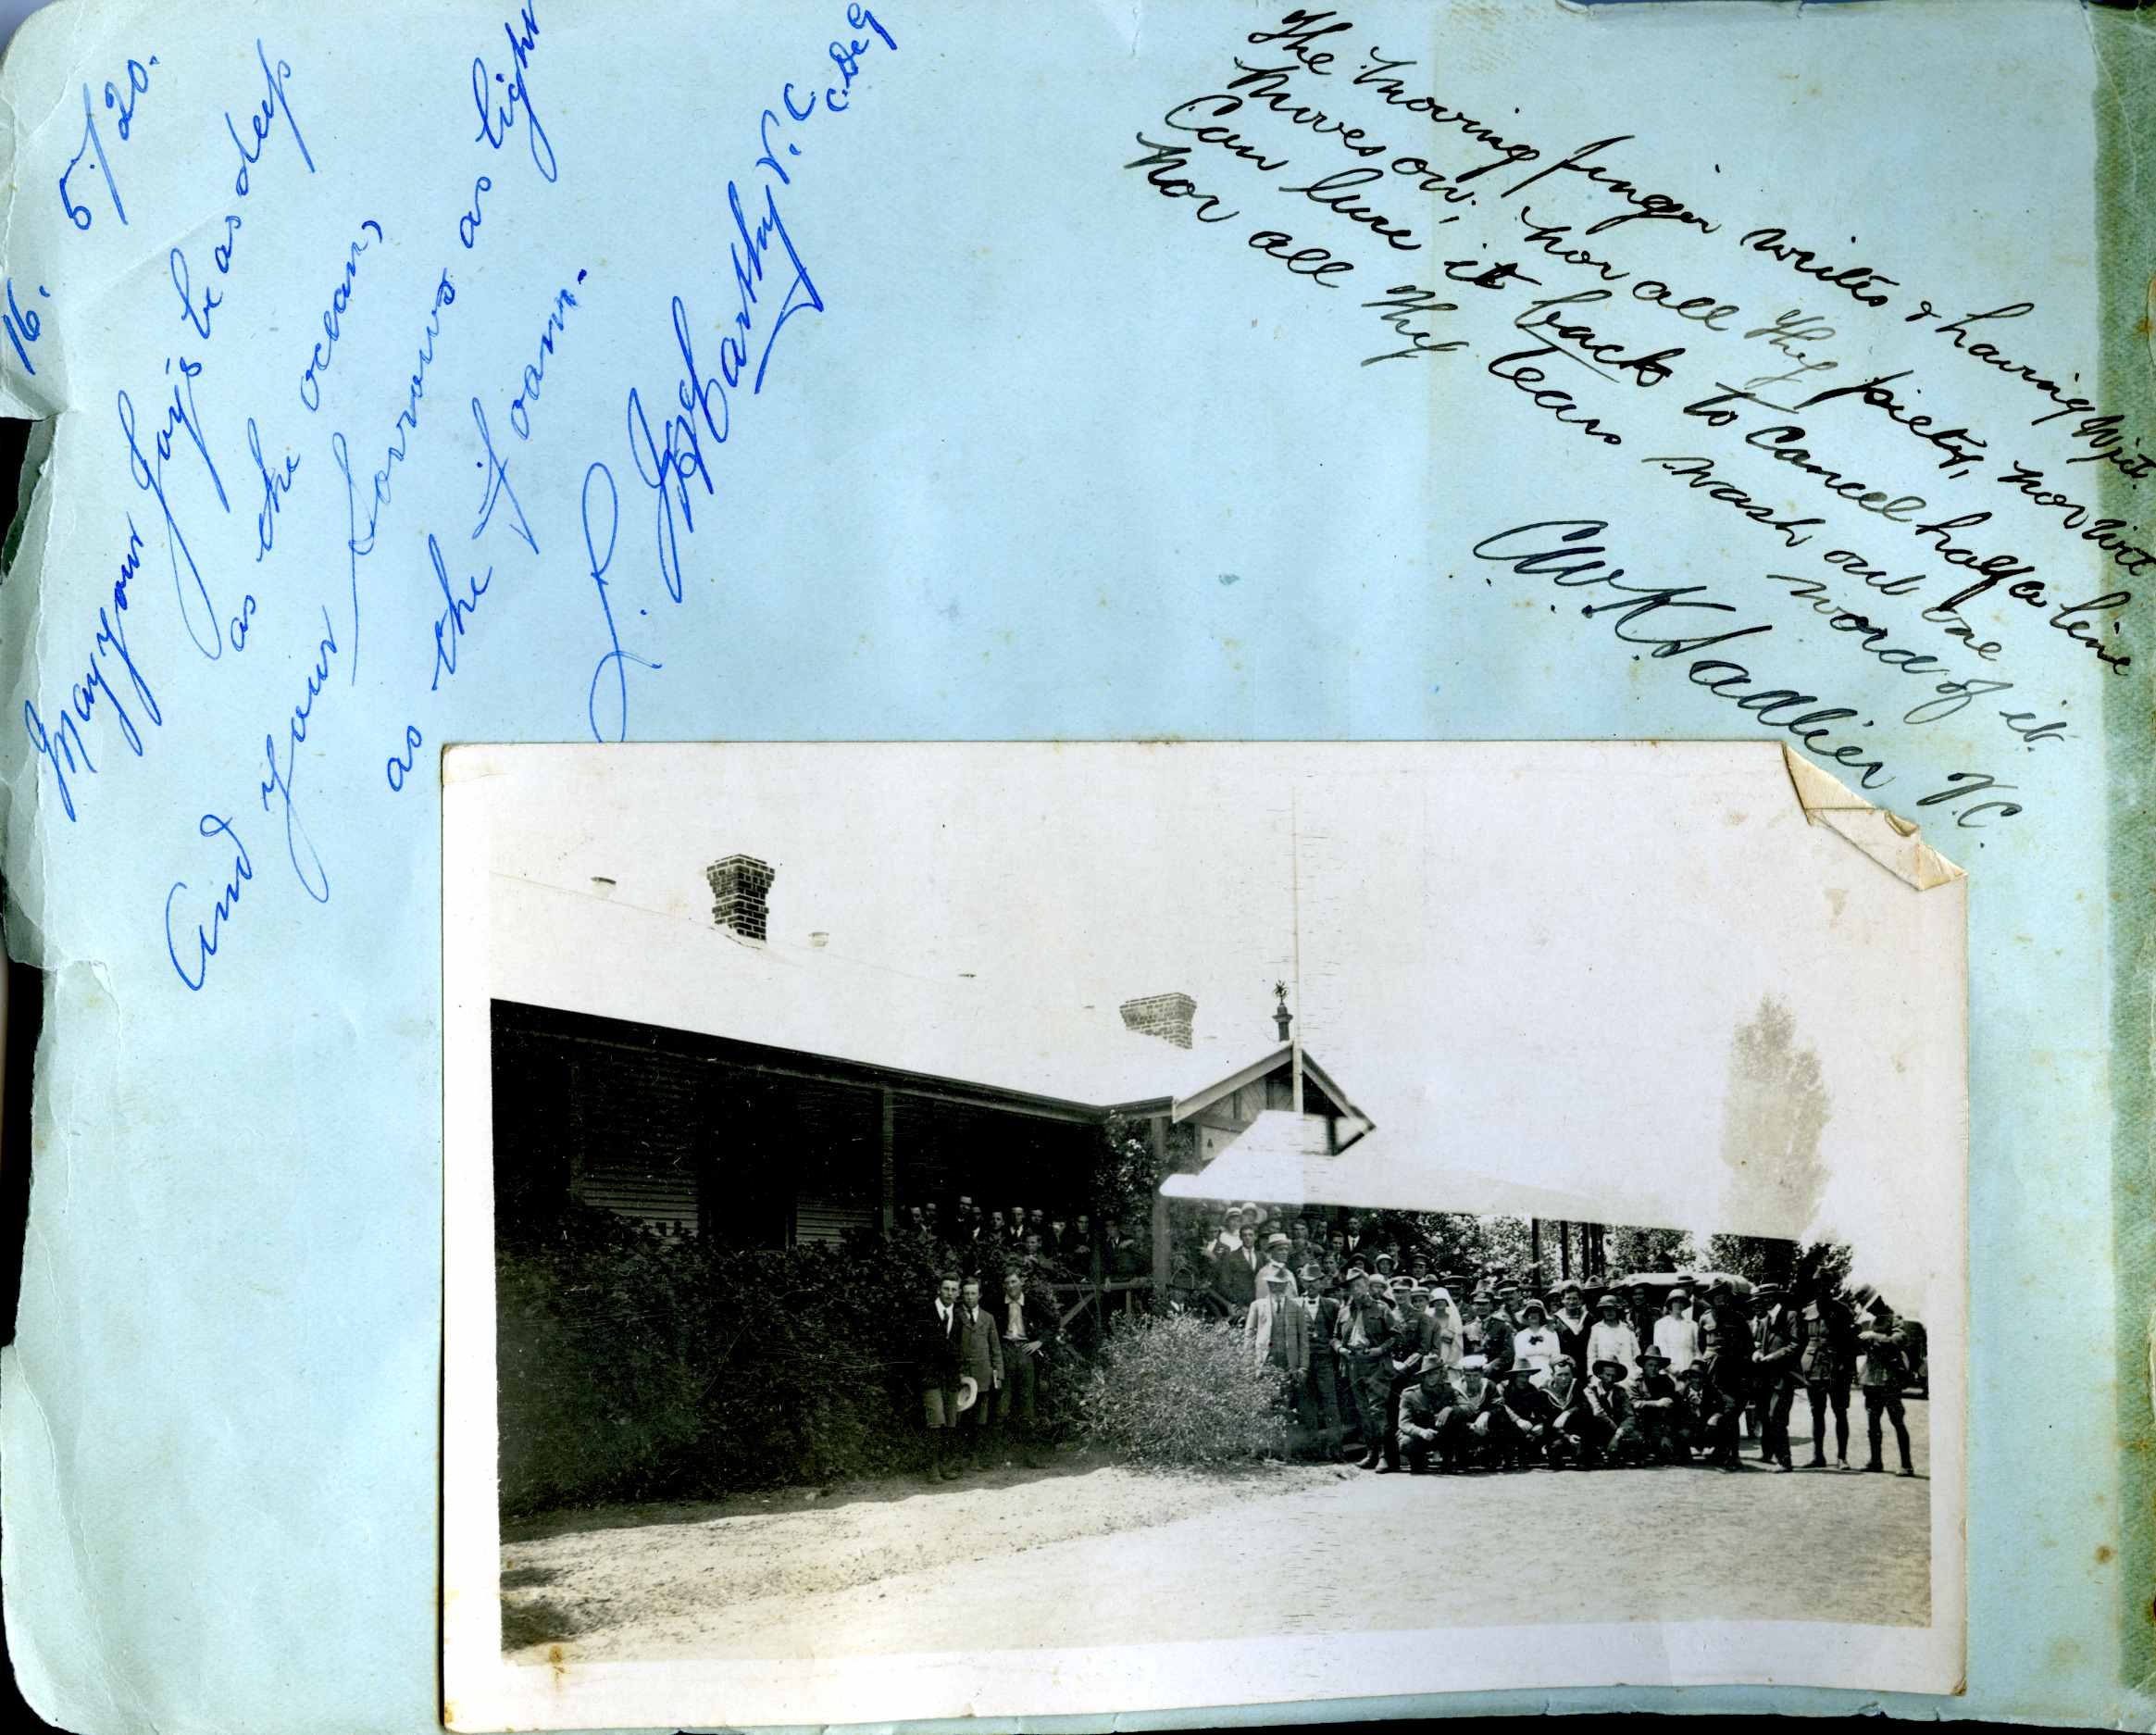 16. 5/20.
May your joys be as deep
as the ocean,
And your sorrows as light
as the foam.
L. McCarthy V.C. C.deG
The moving finger writes & having writ.
Moves on; nor all thy piety, nor wit
Can lure it back to cancel half a line
Nor all thy tears wash out one
word of it.
C.W.K. Sadlier V.C.